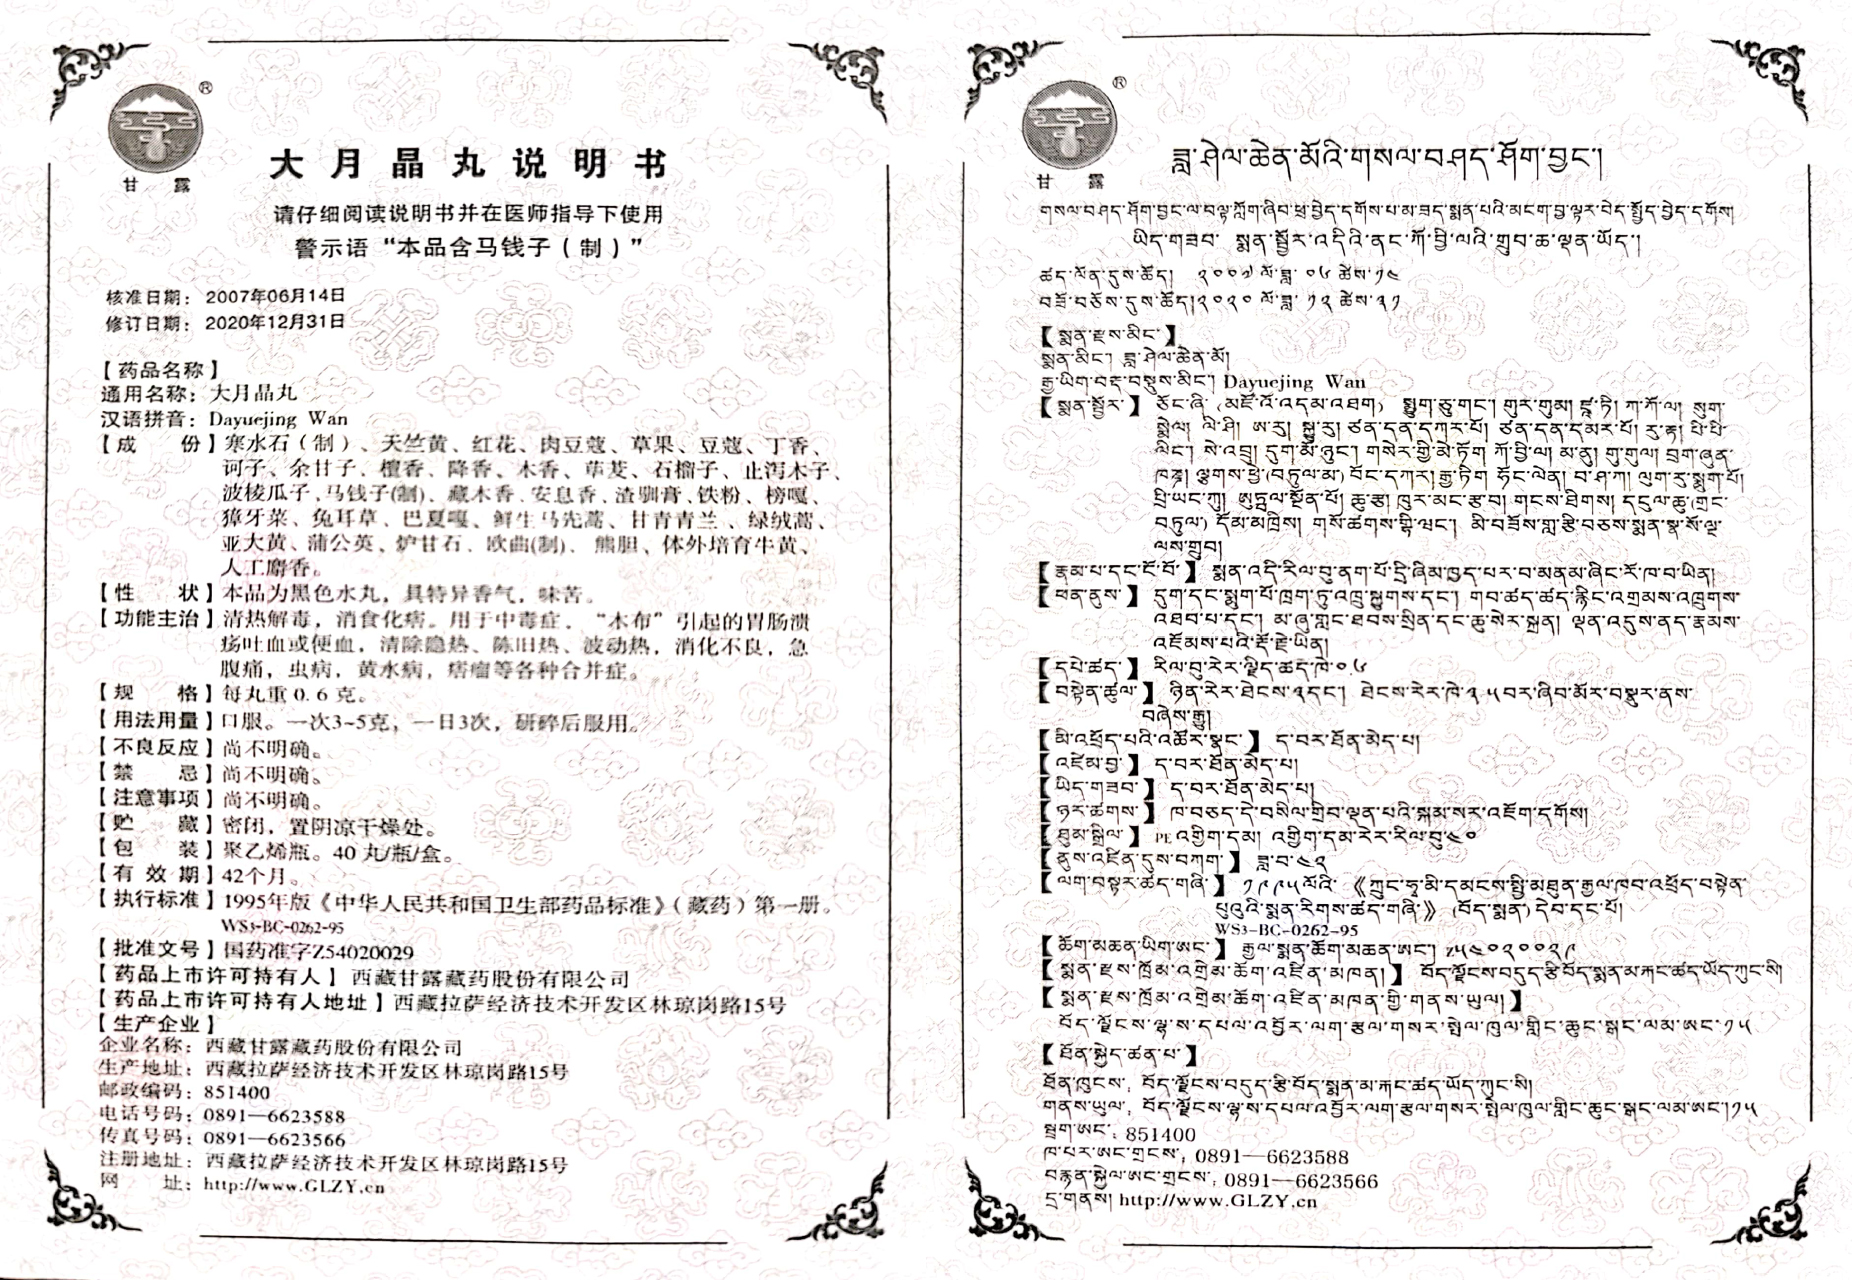 甘 露
®
大月晶丸说明书
请仔细阅读说明书并在医师指导下使用
警示语“本品含马钱子（制）”
核准日期：2007年06月14日
修订日期：2020年12月31日
【药品名称】
通用名称：大月晶丸
汉语拼音：Dayuejing Wan
【成 份】寒水石（制）、天竺黄、红花、肉豆蔻、草果、豆蔻、丁香、
诃子、余甘子、檀香、降香、木香、荜茇、石榴子、止泻木子、
波棱瓜子、马钱子(制)、藏木香、安息香、渣驯膏、铁粉、榜嘎、
獐牙菜、兔耳草、巴夏嘎、鲜生马先蒿、甘青青兰、绿绒蒿、
亚大黄、蒲公英、炉甘石、欧曲(制)、熊胆、体外培育牛黄、
人工麝香。
【性 状】本品为黑色水丸，具特异香气，味苦。
【功能主治】清热解毒，消食化痞。用于中毒症，“木布”引起的胃肠溃
疡吐血或便血，清除隐热、陈旧热、波动热，消化不良，急
腹痛，虫病，黄水病，痞瘤等各种合并症。
【规 格】每丸重 0.6 克。
【用法用量】口服。一次3~5克，一日3次，研碎后服用。
【不良反应】尚不明确。
【禁 忌】尚不明确。
【注意事项】尚不明确。
【贮 藏】密闭，置阴凉干燥处。
【包 装】聚乙烯瓶。40 丸/瓶/盒。
【有 效 期】42个月。
【执行标准】1995年版《中华人民共和国卫生部药品标准》（藏药）第一册。
WS3-BC-0262-95
【批准文号】国药准字Z54020029
【药品上市许可持有人】西藏甘露藏药股份有限公司
【药品上市许可持有人地址】西藏拉萨经济技术开发区林琼岗路15号
【生产企业】
企业名称：西藏甘露藏药股份有限公司
生产地址：西藏拉萨经济技术开发区林琼岗路15号
邮政编码：851400
电话号码：0891—6623588
传真号码：0891—6623566
注册地址：西藏拉萨经济技术开发区林琼岗路15号
网 址：http://www.GLZY.cn
甘 露
®
ཟླ་ཤེལ་ཆེན་མོའི་གསལ་བཤད་ཤོག་བྱང་།
གསལ་བཤད་ཤོག་བྱང་ལ་བལྟ་ཀློག་ཞིབ་ཕྲ་བྱེད་དགོས་པ་མ་ཟད་སྨན་པའི་མངག་བྱ་ལྟར་བེད་སྤྱོད་བྱེད་དགོས།
ཡིད་གཟབ་ སྨན་སྦྱོར་འདིའི་ནང་ཀོ་བྱི་ལའི་གྲུབ་ཆ་ལྡན་ཡོད་།
ཚད་ལོན་དུས་ཚོད། ༢༠༠༧ ལོ་ཟླ་ ༠༦ ཚེས་༡༤
བཟོ་བཅོས་དུས་ཚོད།༢༠༢༠ ལོ་ཟླ་ ༡༢ ཚེས་༣༡
【སྨན་རྫས་མིང་】
སྨན་མིང་། ཟླ་ཤེལ་ཆེན་མོ།
རྒྱ་ཡིག་བརྡ་བསྡུས་མིང་། Dayuejing Wan
【སྨན་སྦྱོར་】 ཅོང་ཞི་ (མཛོ་འོ་འདམ་འཐག) སྨྱུག་ཅུ་གང་། གུར་གུམ། ཛཱ་ཏི། ཀ་ཀོ་ལ། སུག་
སྨེལ། ལི་ཤི། ཨ་རུ། སྐྱུ་རུ། ཙན་དན་དཀར་པོ། ཙན་དན་དམར་པོ། རུ་རྟ། པི་པི་
ལིང་། སེ་འབྲུ། དུག་མོ་ཉུང་། གསེར་གྱི་མེ་ཏོག ཀོ་བྱི་ལ། མ་ནུ། གུ་གུལ། བྲག་ཞུན་
ཁཎྜ། ལྕགས་ཕྱེ་(བཏུལ་མ་) བོང་དཀར། རྒྱ་ཏིག ཧོང་ལེན། བ་ཤ་ཀ། ལུག་རུ་སྨུག་པོ།
པྲི་ཡང་ཀུ། ཨུཏྤལ་སྔོན་པོ། ཆུ་རྩ། ཁུར་མང་རྩ་བ། གངས་ཐིགས། དངུལ་ཆུ་(གྲང་
བཏུལ) དོམ་མཁྲིས། གསོ་ཚགས་གྷི་ཝང་། མི་བཟོས་གླ་རྩི་བཅས་སྨན་སྣ་སོ་ལྔ་
ལས་གྲུབ།
【རྣམ་པ་དང་ངོ་བོ་】 སྨན་འདི་རིལ་བུ་ནག་པོ་དྲི་ཞིམ་ཁྱད་པར་བ་མནམ་ཞིང་རོ་ཁ་བ་ཡིན།
【ཕན་ནུས་】 དུག་དང་སྨུག་པོ་ཁྲག་ཏུ་འཁྲུ་སྐྱུགས་དང་། གབ་ཚད་ཚད་རྙིང་འགྲམས་འཁྲུགས་
འཐབ་པ་དང་། མ་ཞུ་གླང་ཐབས་སྲིན་དང་ཆུ་སེར་སྐྲན། ལྡན་འདུས་ནད་རྣམས་
འཇོམས་པའི་རྡོ་རྗེ་ཡིན།
【དཔེ་ཚད་】 རིལ་བུ་རེར་ལྗིད་ཚད་ཁེ་༠.༦
【བསྟེན་ཚུལ་】 ཉིན་རེར་ཐེངས་༣དང་། ཐེངས་རེར་ཁེ་༣.༥བར་ཞིབ་མོར་བསྣུར་ནས་
བཞེས་རྒྱུ།
【མི་འཕྲོད་པའི་འཚོར་སྣང་】 ད་བར་ཐོན་མེད་པ།
【འཛེམ་བྱ་】 ད་བར་ཐོན་མེད་པ།
【ཡིད་གཟབ་】 ད་བར་ཐོན་མེད་པ།
【ཉར་ཚགས་】 ཁ་བཅད་དེ་བསིལ་གྲིབ་ལྡན་པའི་སྐམ་སར་འཇོག་དགོས།
【ཐུམ་སྒྲིལ་】 PE འགྱིག་དམ། འགྱིག་དམ་རེར་རིལ་བུ་༤༠
【ནུས་འཛིན་དུས་བཀག་】 ཟླ་བ་༤༢
【ལག་བསྟར་ཚད་གཞི་】 ༡༩༩༥ལོའི་ 《ཀྲུང་ཧྭ་མི་དམངས་སྤྱི་མཐུན་རྒྱལ་ཁབ་འཕྲོད་བསྟེན་
པུའུའི་སྨན་རིགས་ཚད་གཞི་》 (བོད་སྨན) དེབ་དང་པོ།
WS3-BC-0262-95
【ཆོག་མཆན་ཡིག་ཨང་】 རྒྱལ་སྨན་ཆོག་མཆན་ཨང་། Z༥༤༠༢༠༠༢༩
【སྨན་རྫས་ཁྲོམ་འགྲེམ་ཆོག་འཛིན་མཁན།】 བོད་ལྗོངས་བདུད་རྩི་བོད་སྨན་མ་རྐང་ཚད་ཡོད་ཀུང་སི།
【སྨན་རྫས་ཁྲོམ་འགྲེམ་ཆོག་འཛིན་མཁན་གྱི་གནས་ཡུལ།】
བོད་ལྗོངས་ལྷ་ས་དཔལ་འབྱོར་ལག་རྩལ་གསར་སྤེལ་ཁུལ་གླིང་ཆུང་སྒང་ལམ་ཨང་༡༥
【ཐོན་སྐྱེད་ཚན་པ་】
ཐོན་ཁུངས་: བོད་ལྗོངས་བདུད་རྩི་བོད་སྨན་མ་རྐང་ཚད་ཡོད་ཀུང་སི།
གནས་ཡུལ་: བོད་ལྗོངས་ལྷ་ས་དཔལ་འབྱོར་ལག་རྩལ་གསར་སྤེལ་ཁུལ་གླིང་ཆུང་སྒང་ལམ་ཨང་།༡༥
སྦྲག་ཨང་: 851400
ཁ་པར་ཨང་གྲངས་: 0891—6623588
བརྙན་སྐྱེལ་ཨང་གྲངས་: 0891—6623566
དྲ་གནས། http://www.GLZY.cn